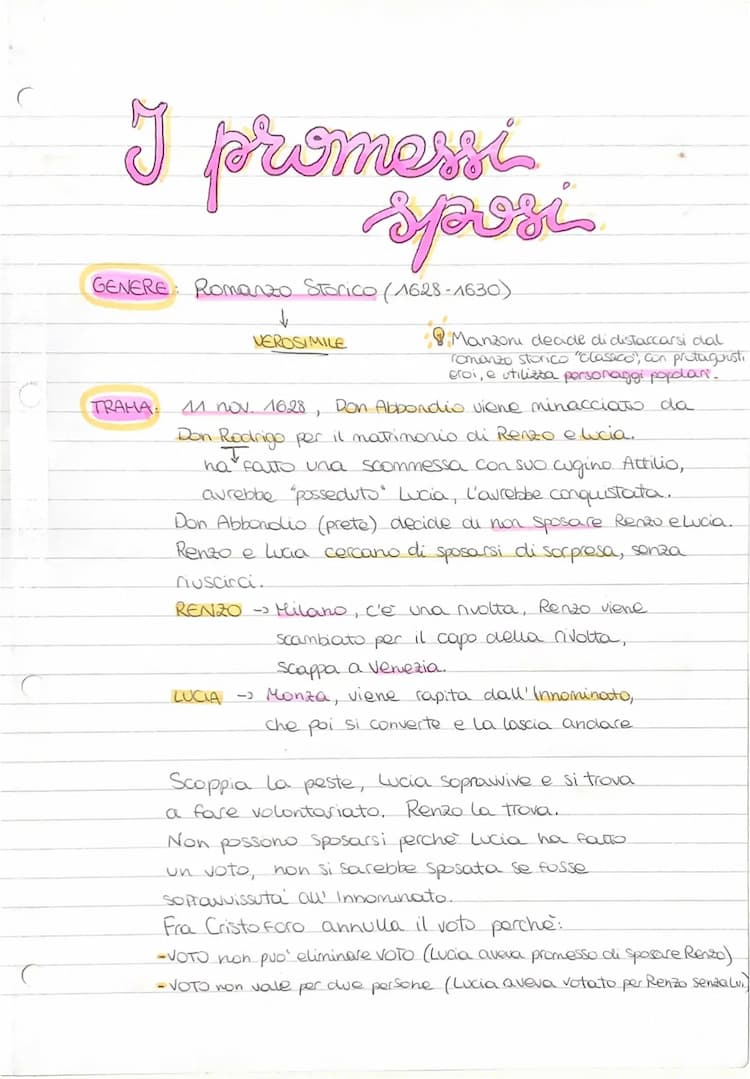 I promessi
sposi
GENERE: Romanzo Storico (1628-1630)
↓
VEROSIMILE
Manzoni decide di distaccarsi dal
romanzo storico "classico", con protagonisti
eroi, e utilizza personaggi popolari.
TRAMA: 11 nov. 1628, Don Abbondio viene minacciato da
Don Rodrigo per il matrimonio di Renzo e Lucia.
ha fatto una scommessa con suo cugino Attilio,
avrebbe "posseduto" Lucia, l'avrebbe conquistata.
Don Abbondio (prete) decide di non sposare Renzo e Lucia.
Renzo e Lucia cercano di sposarsi di sorpresa, senza
riuscirci.
RENZO -> Milano, c'è una rivolta, Renzo viene
scambiato per il capo della rivolta,
scappa a Venezia.
LUCIA -> Monza, viene rapita dall'Innominato,
che poi si converte e la lascia andare
Scoppia la peste, Lucia sopravvive e si trova
a fare volontariato. Renzo la trova.
Non possono sposarsi perchè Lucia ha fatto
un voto, non si sarebbe sposata se fosse
sopravvissuta all'Innominato.
Fra Cristoforo annulla il voto perchè:
-VOTO non può eliminare VOTO (Lucia aveva promesso di sposare Renzo)
-VOTO non vale per due persone (Lucia aveva votato per Renzo senza lui)